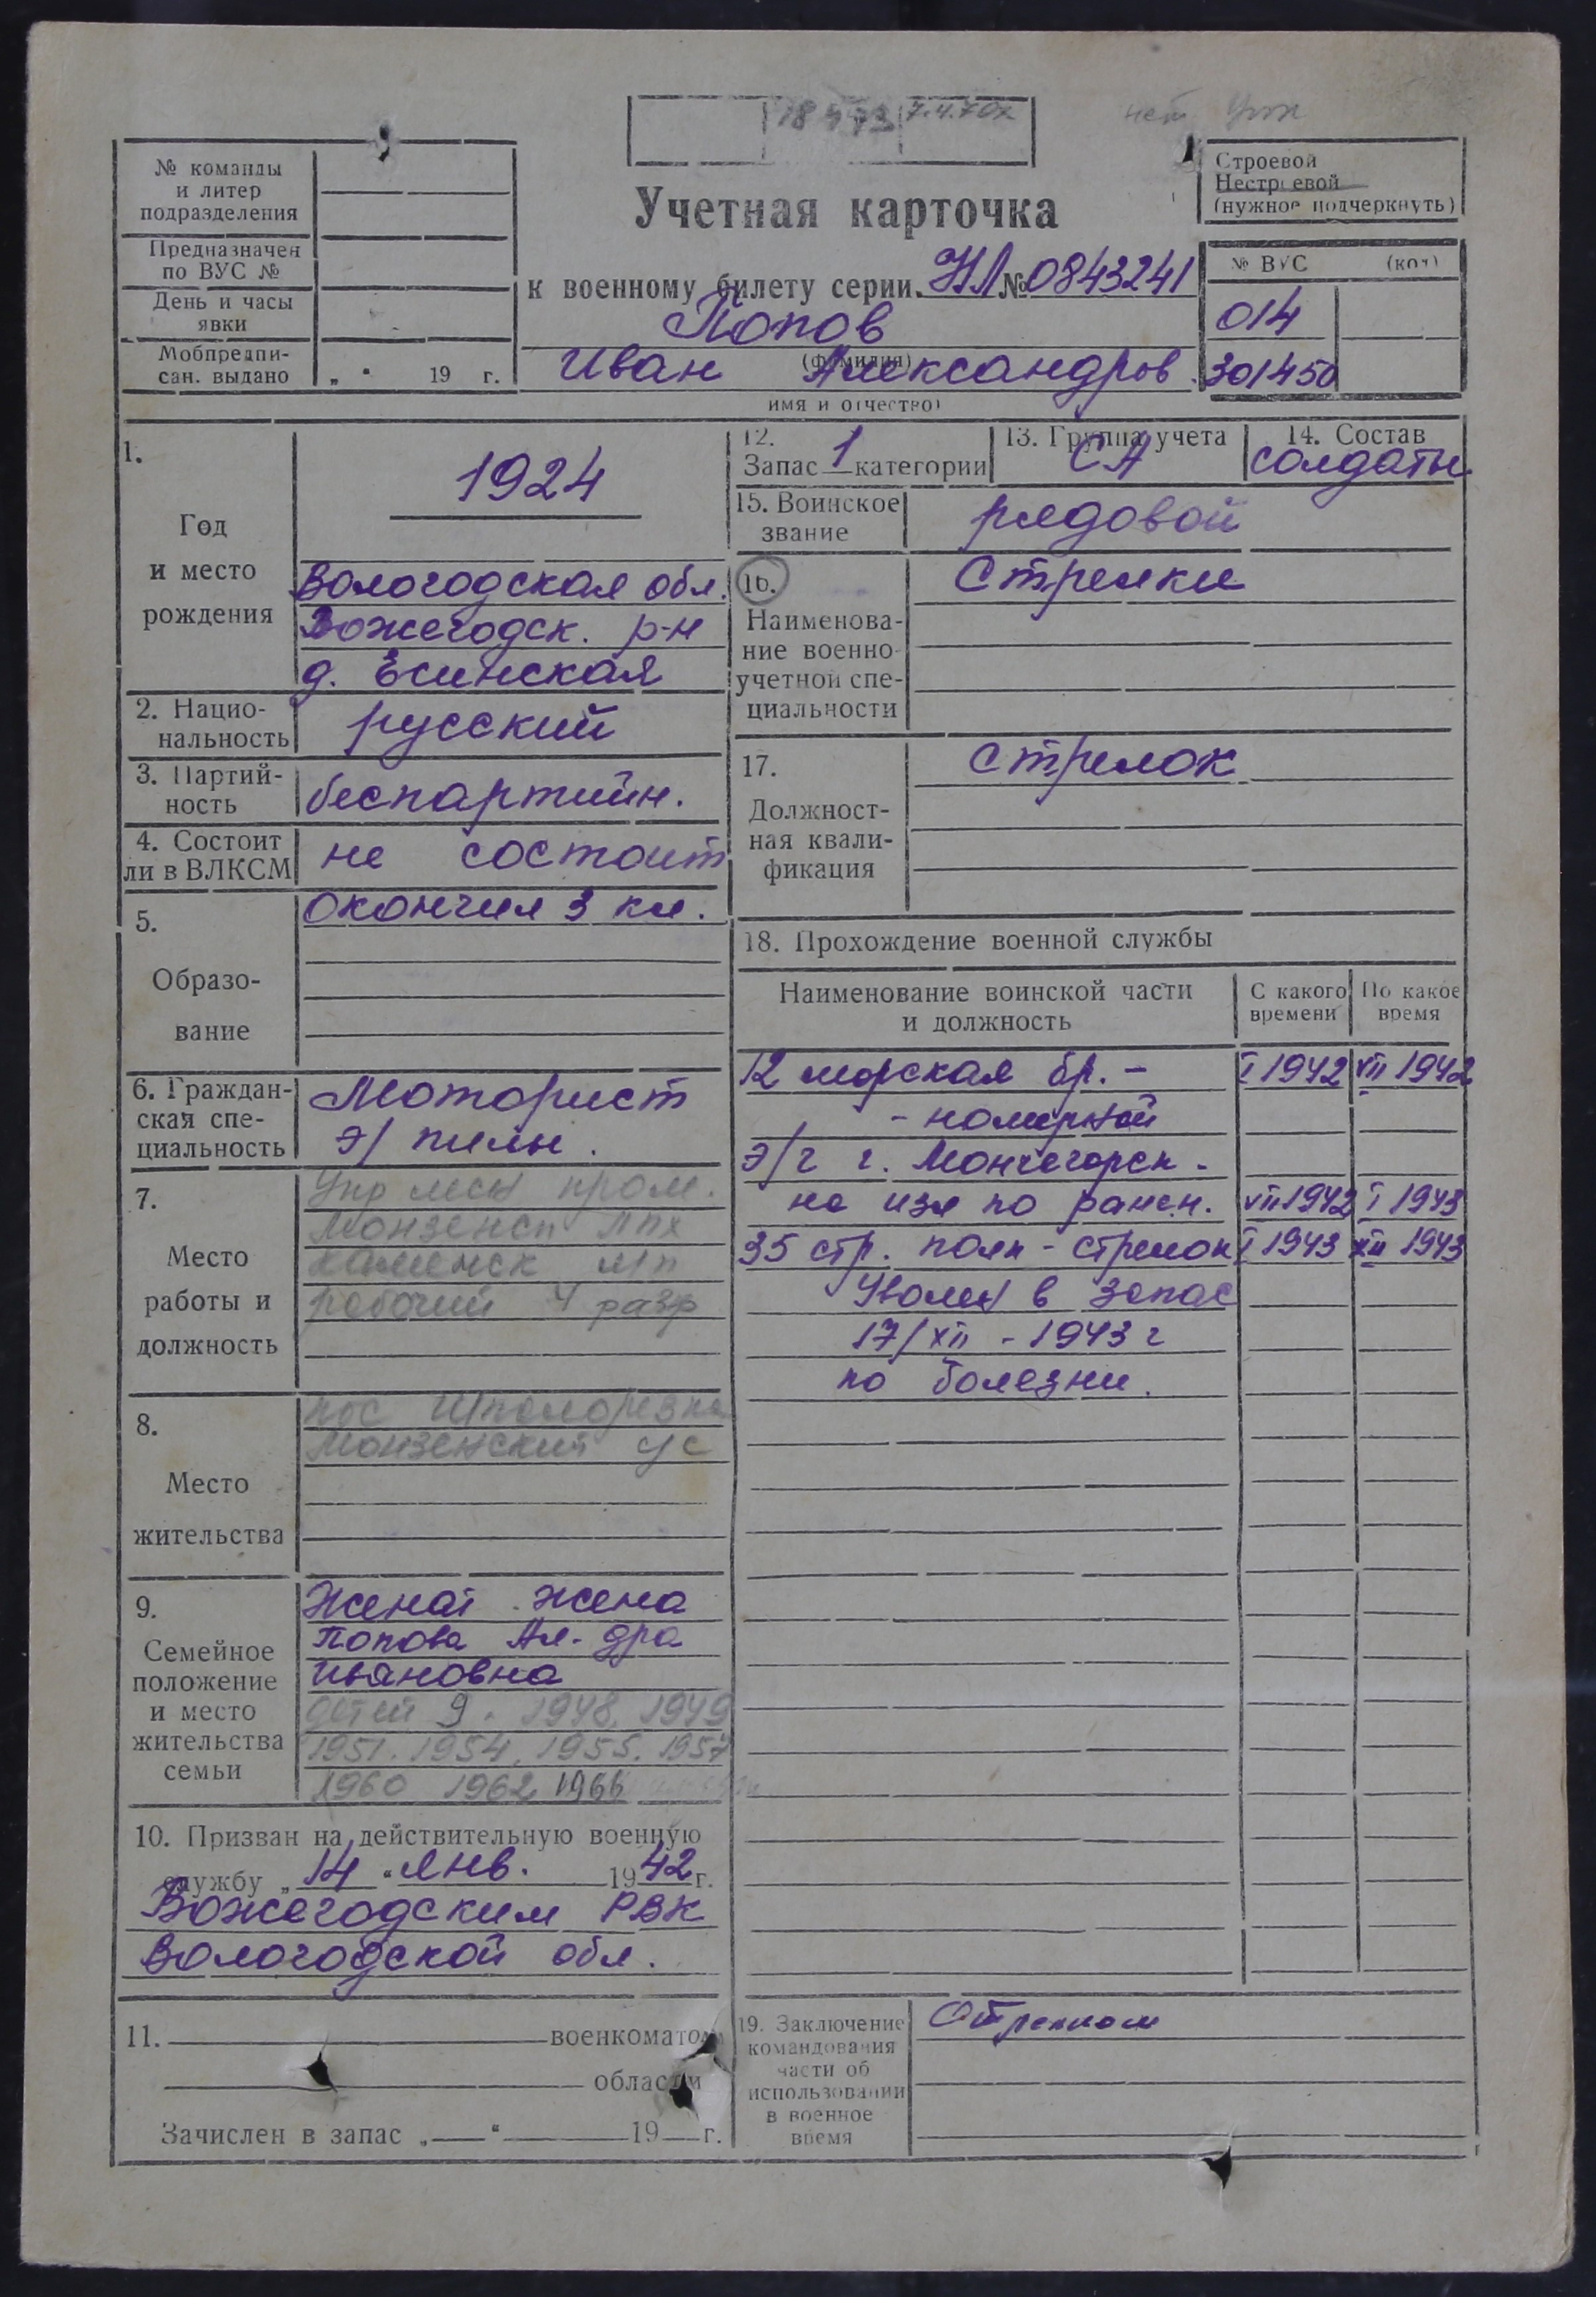 18473 7.4.70г
нет
№ команды
и литер
подразделения
Предназначен
по ВУС №
День и часы
явки
Мобпредпи-
сан. выдано „ “ 19 г.
Строевой
Нестроевой
(нужное подчеркнуть)
Учетная карточка
к военному билету серии НЛ № 0843241
Попов
(фамилия)
Иван Александров.
имя и отчество)
№ ВУС (код)
014
301450
1.
Год
и место
рождения
1924
Вологодская обл.
Вожегодск. р-н
д. Есинская
2. Нацио-
нальность
русский
3. Партий-
ность
беспартийн.
4. Состоит
ли в ВЛКСМ
не состоит
5.
Образо-
вание
окончил 3 кл.
6. Граждан-
ская спе-
циальность
Моторист
э/ пилы.
7.
Место
работы и
должность
Упр лесн пром.
Монзенсп ЛПХ
Каменск л/п
рабочий 4 разр
8.
Место
жительства
пос Шпалорезка
Монзенский с/с
9.
Семейное
положение
и место
жительства
семьи
Женат. жена
Попова Ал-дра
Ивановна
детей 9. 1948, 1949
1951. 1954, 1955, 1957
1960 1962 1966
10. Призван на действительную военную
службу „ 14 “ янв. 1942 г.
Вожегодским РВК
Вологодской обл.
11. военкоматом
области
Зачислен в запас „ “ 19 г.
12.
Запас 1 категории
13. Группа учета
СА
14. Состав
солдаты
15. Воинское
звание
рядовой
16.
Наименова-
ние военно-
учетной спе-
циальности
Стрелки
17.
Должност-
ная квали-
фикация
стрелок
18. Прохождение военной службы
Наименование воинской части
и должность
С какого
времени
По какое
время
12 морская бр. - I 1942 VII 1942
- номерной
э/г г. Мончегорск -
на изл по ранен. VII 1942 I 1943
35 стр. полк - стрелок I 1943 XII 1943
Уволен в запас
17/XII - 1943 г
по болезни.
19. Заключение
командования
части об
использовании
в военное
время
Стрелком